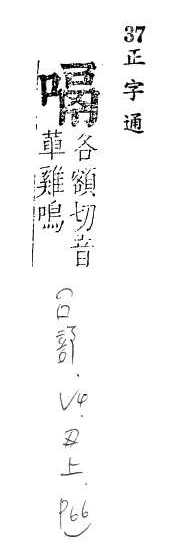 37正字通
嗝各額切音
革雞鳴
(口部.V4.丑上.P66)